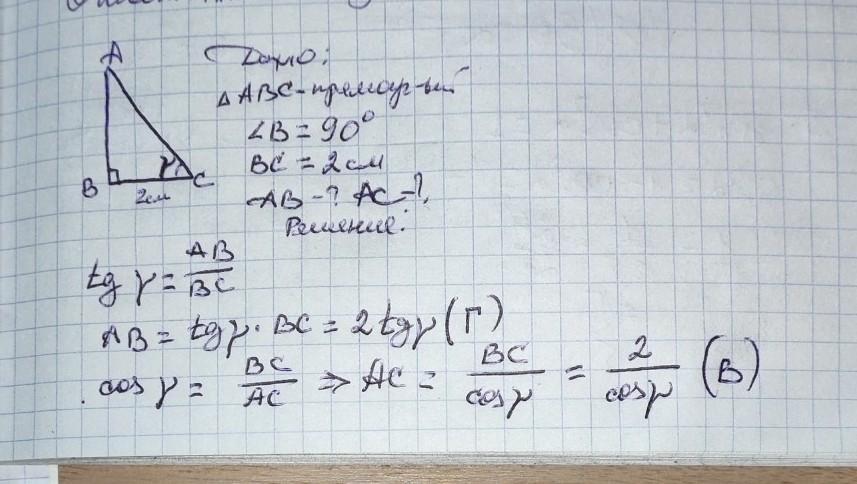 A
Дано:
△ABC-прямоуг-ый
∠B = 90°
BC = 2 см
B γ C
2см
AB-? AC-?
Решение:
tg γ = AB/BC
AB = tgγ · BC = 2 tgγ (Г)
cos γ = BC/AC ⇒ AC = BC/cosγ = 2/cosγ (В)